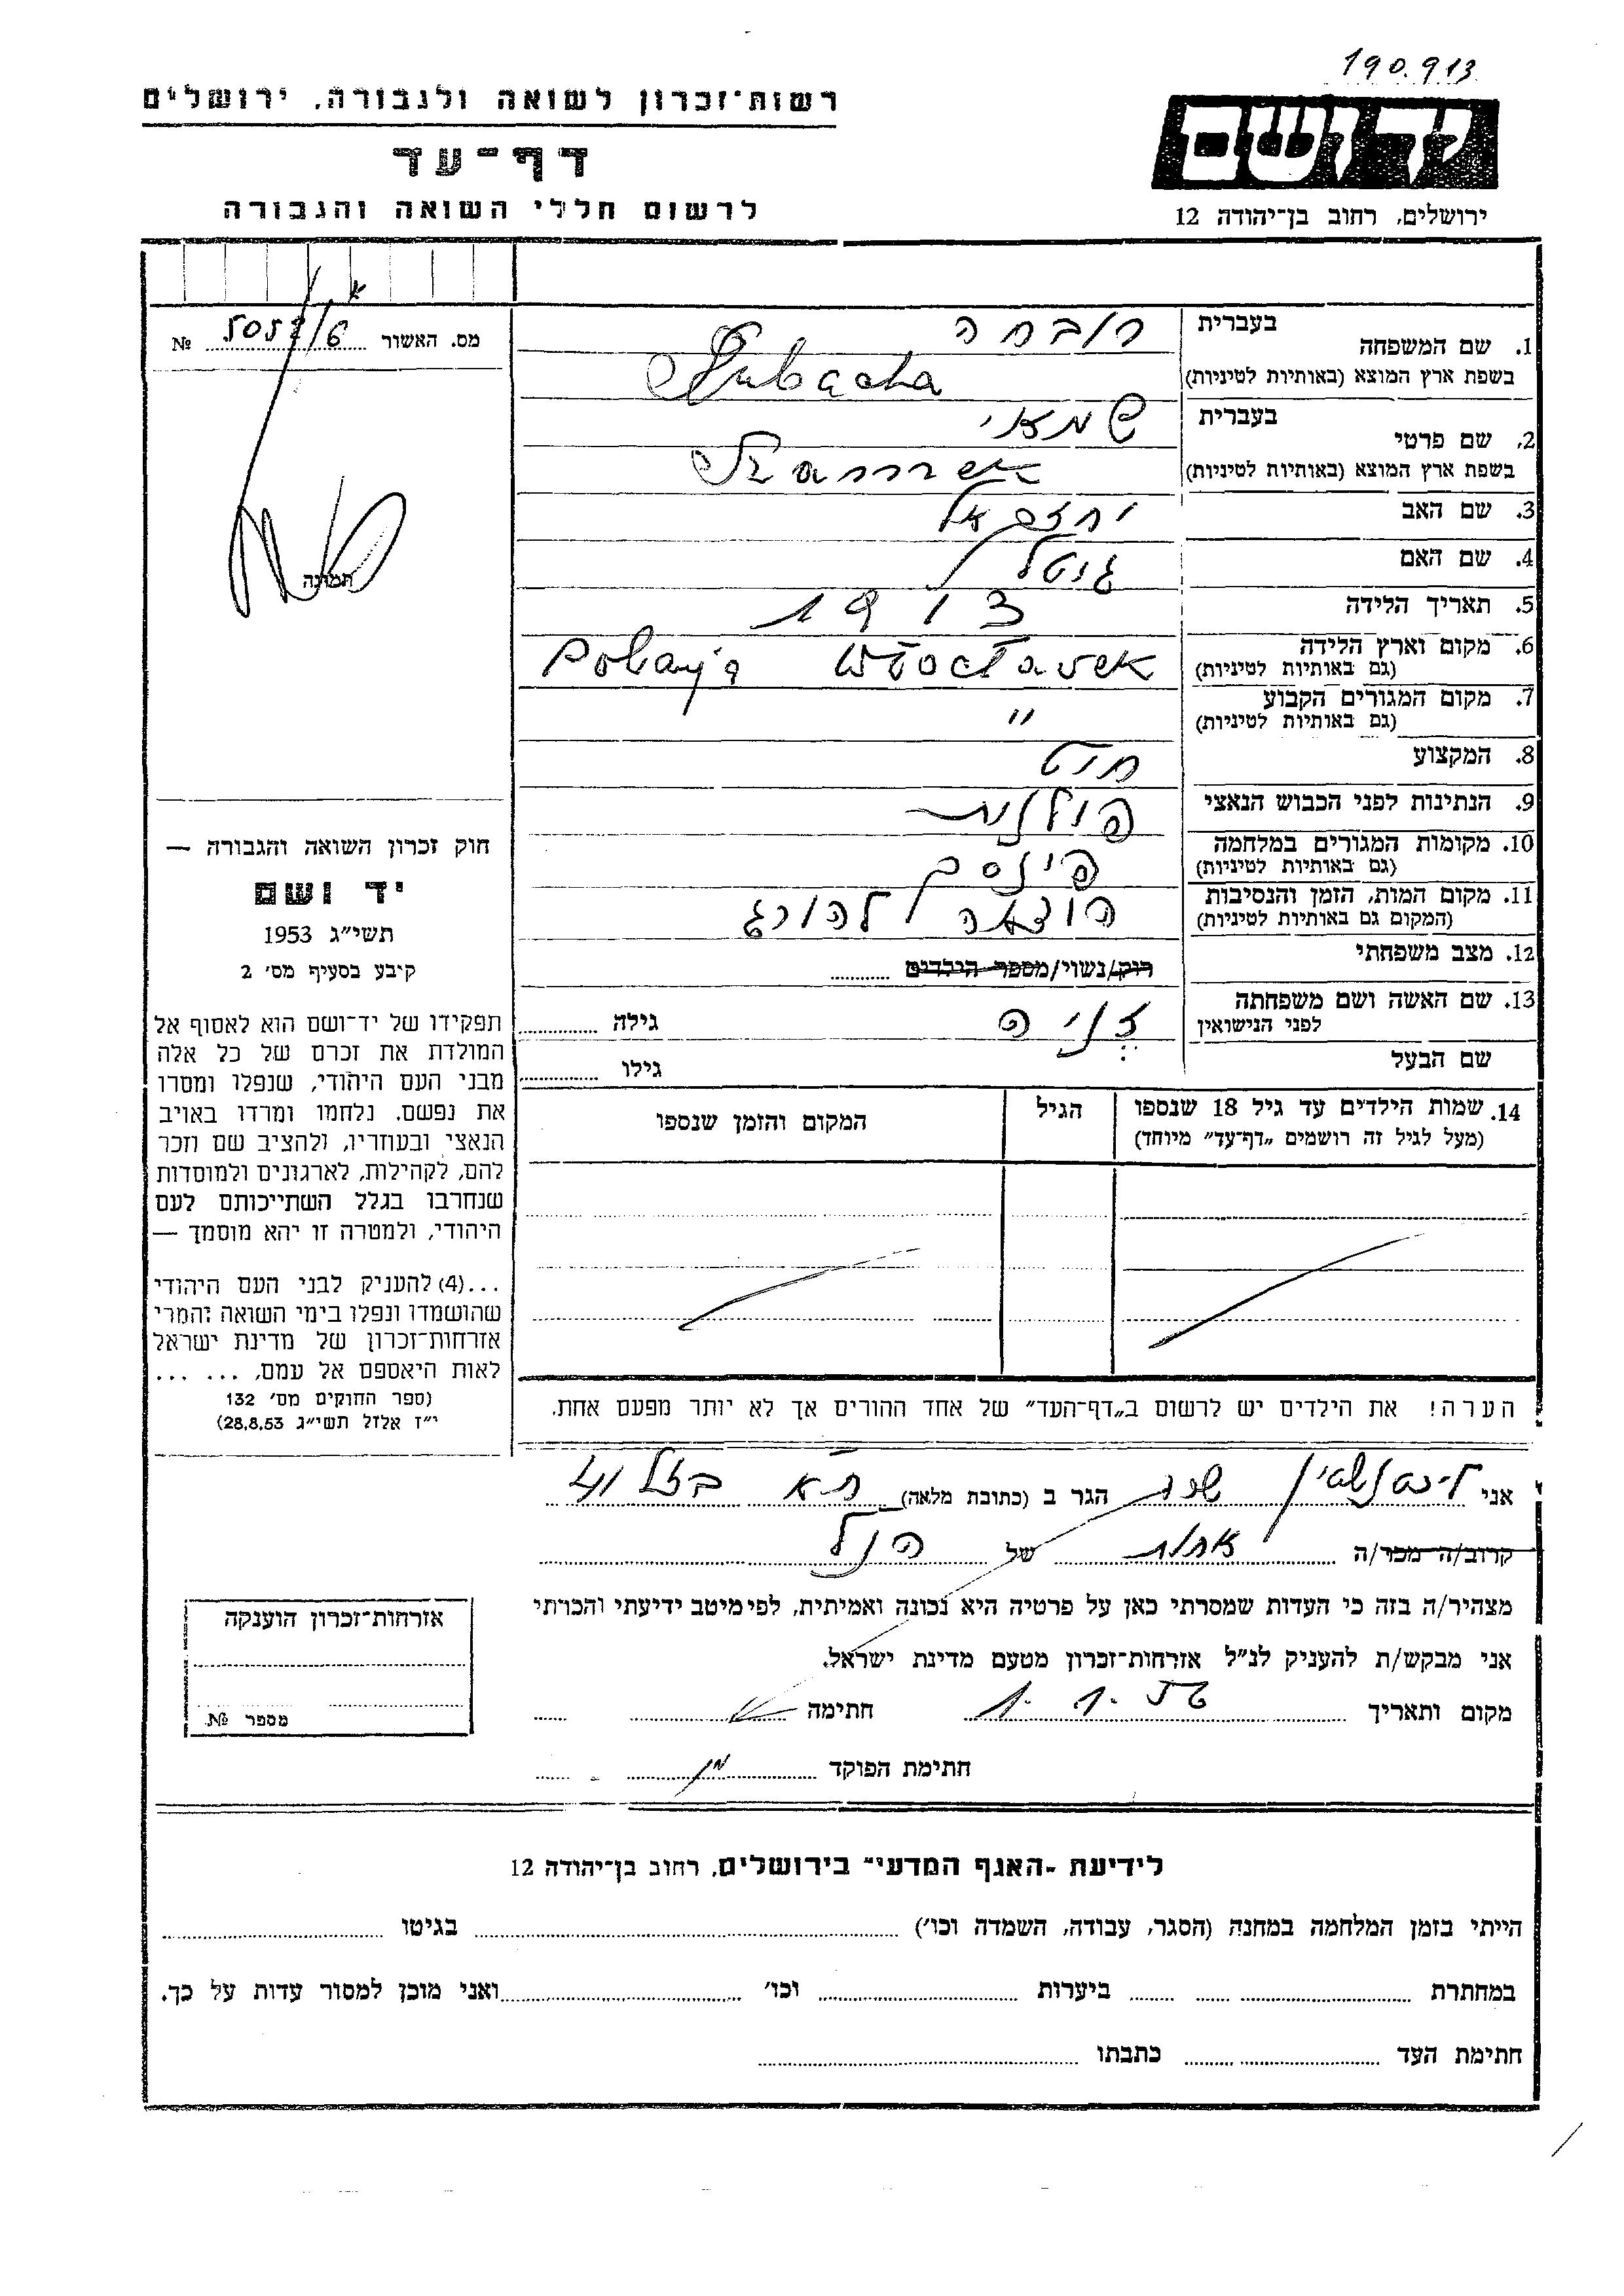 190.913
רשות־זכרון לשואה ולגבורה, ירושלים
דף־עד
לרשום חללי השואה והגבורה
יד ושם
ירושלים, רחוב בן־יהודה 12
מס. האשור № 5052/6
תמונה
חוק זכרון השואה והגבורה —
יד ושם
תשי״ג 1953
קיבע בסעיף מס׳ 2
תפקידו של יד־ושם הוא לאסוף אל
המולדת את זכרם של כל אלה
מבני העם היהודי, שנפלו ומסרו
את נפשם. נלחמו ומרדו באויב
הנאצי ובעוזריו, ולהציב שם וזכר
להם, לקהילות, לארגונים ולמוסדות
שנחרבו בגלל השתייכותם לעם
היהודי, ולמטרה זו יהא מוסמך —
...(4) להעניק לבני העם היהודי
שהושמדו ונפלו בימי השואה והמרי
אזרחות־זכרון של מדינת ישראל
לאות היאספם אל עמם, ... ...
(ספר החוקים מס׳ 132
י״ז אלול תשי״ג 28.8.53)
1. שם המשפחה בעברית רובחה
בשפת ארץ המוצא (באותיות לטיניות) Rubacha
2. שם פרטי בעברית שמאי
בשפת ארץ המוצא (באותיות לטיניות)
3. שם האב יחזקאל
4. שם האם גיטל
5. תאריך הלידה 1913
6. מקום וארץ הלידה Włocławek
(גם באותיות לטיניות)
7. מקום המגורים הקבוע ״
(גם באותיות לטיניות)
8. המקצוע חיט
9. הנתינות לפני הכבוש הנאצי פולנית
10. מקומות המגורים במלחמה פינסק
(גם באותיות לטיניות)
11. מקום המות, הזמן והנסיבות הוצאה להורג
(המקום גם באותיות לטיניות)
12. מצב משפחתי רוק/נשוי/מספר הילדים
13. שם האשה ושם משפחתה גילה
לפני הנישואין
שם הבעל גילו
14. שמות הילדים עד גיל 18 שנספו הגיל המקום והזמן שנספו
(מעל לגיל זה רושמים „דף־עד״ מיוחד)
הערה! את הילדים יש לרשום ב„דף־העד״ של אחד ההורים אך לא יותר מפעם אחת.
אני ליכטנשטין שרה הגר ב (כתובת מלאה) ת״א
קרוב/ה מכר/ה אחות של הנ״ל
מצהיר/ה בזה כי העדות שמסרתי כאן על פרטיה היא נכונה ואמיתית, לפי מיטב ידיעתי והכרתי
אני מבקש/ת להעניק לנ״ל אזרחות־זכרון מטעם מדינת ישראל.
מקום ותאריך 1.1. חתימה
חתימת הפוקד
אזרחות־זכרון הוענקה
מספר №
לידיעת ״האגף המדעי״ בירושלים, רחוב בן־יהודה 12
הייתי בזמן המלחמה במחנה (הסגר, עבודה, השמדה וכו׳) בגיטו
במחתרת ביערות וכו׳ ואני מוכן למסור עדות על כך.
חתימת העד כתבתו